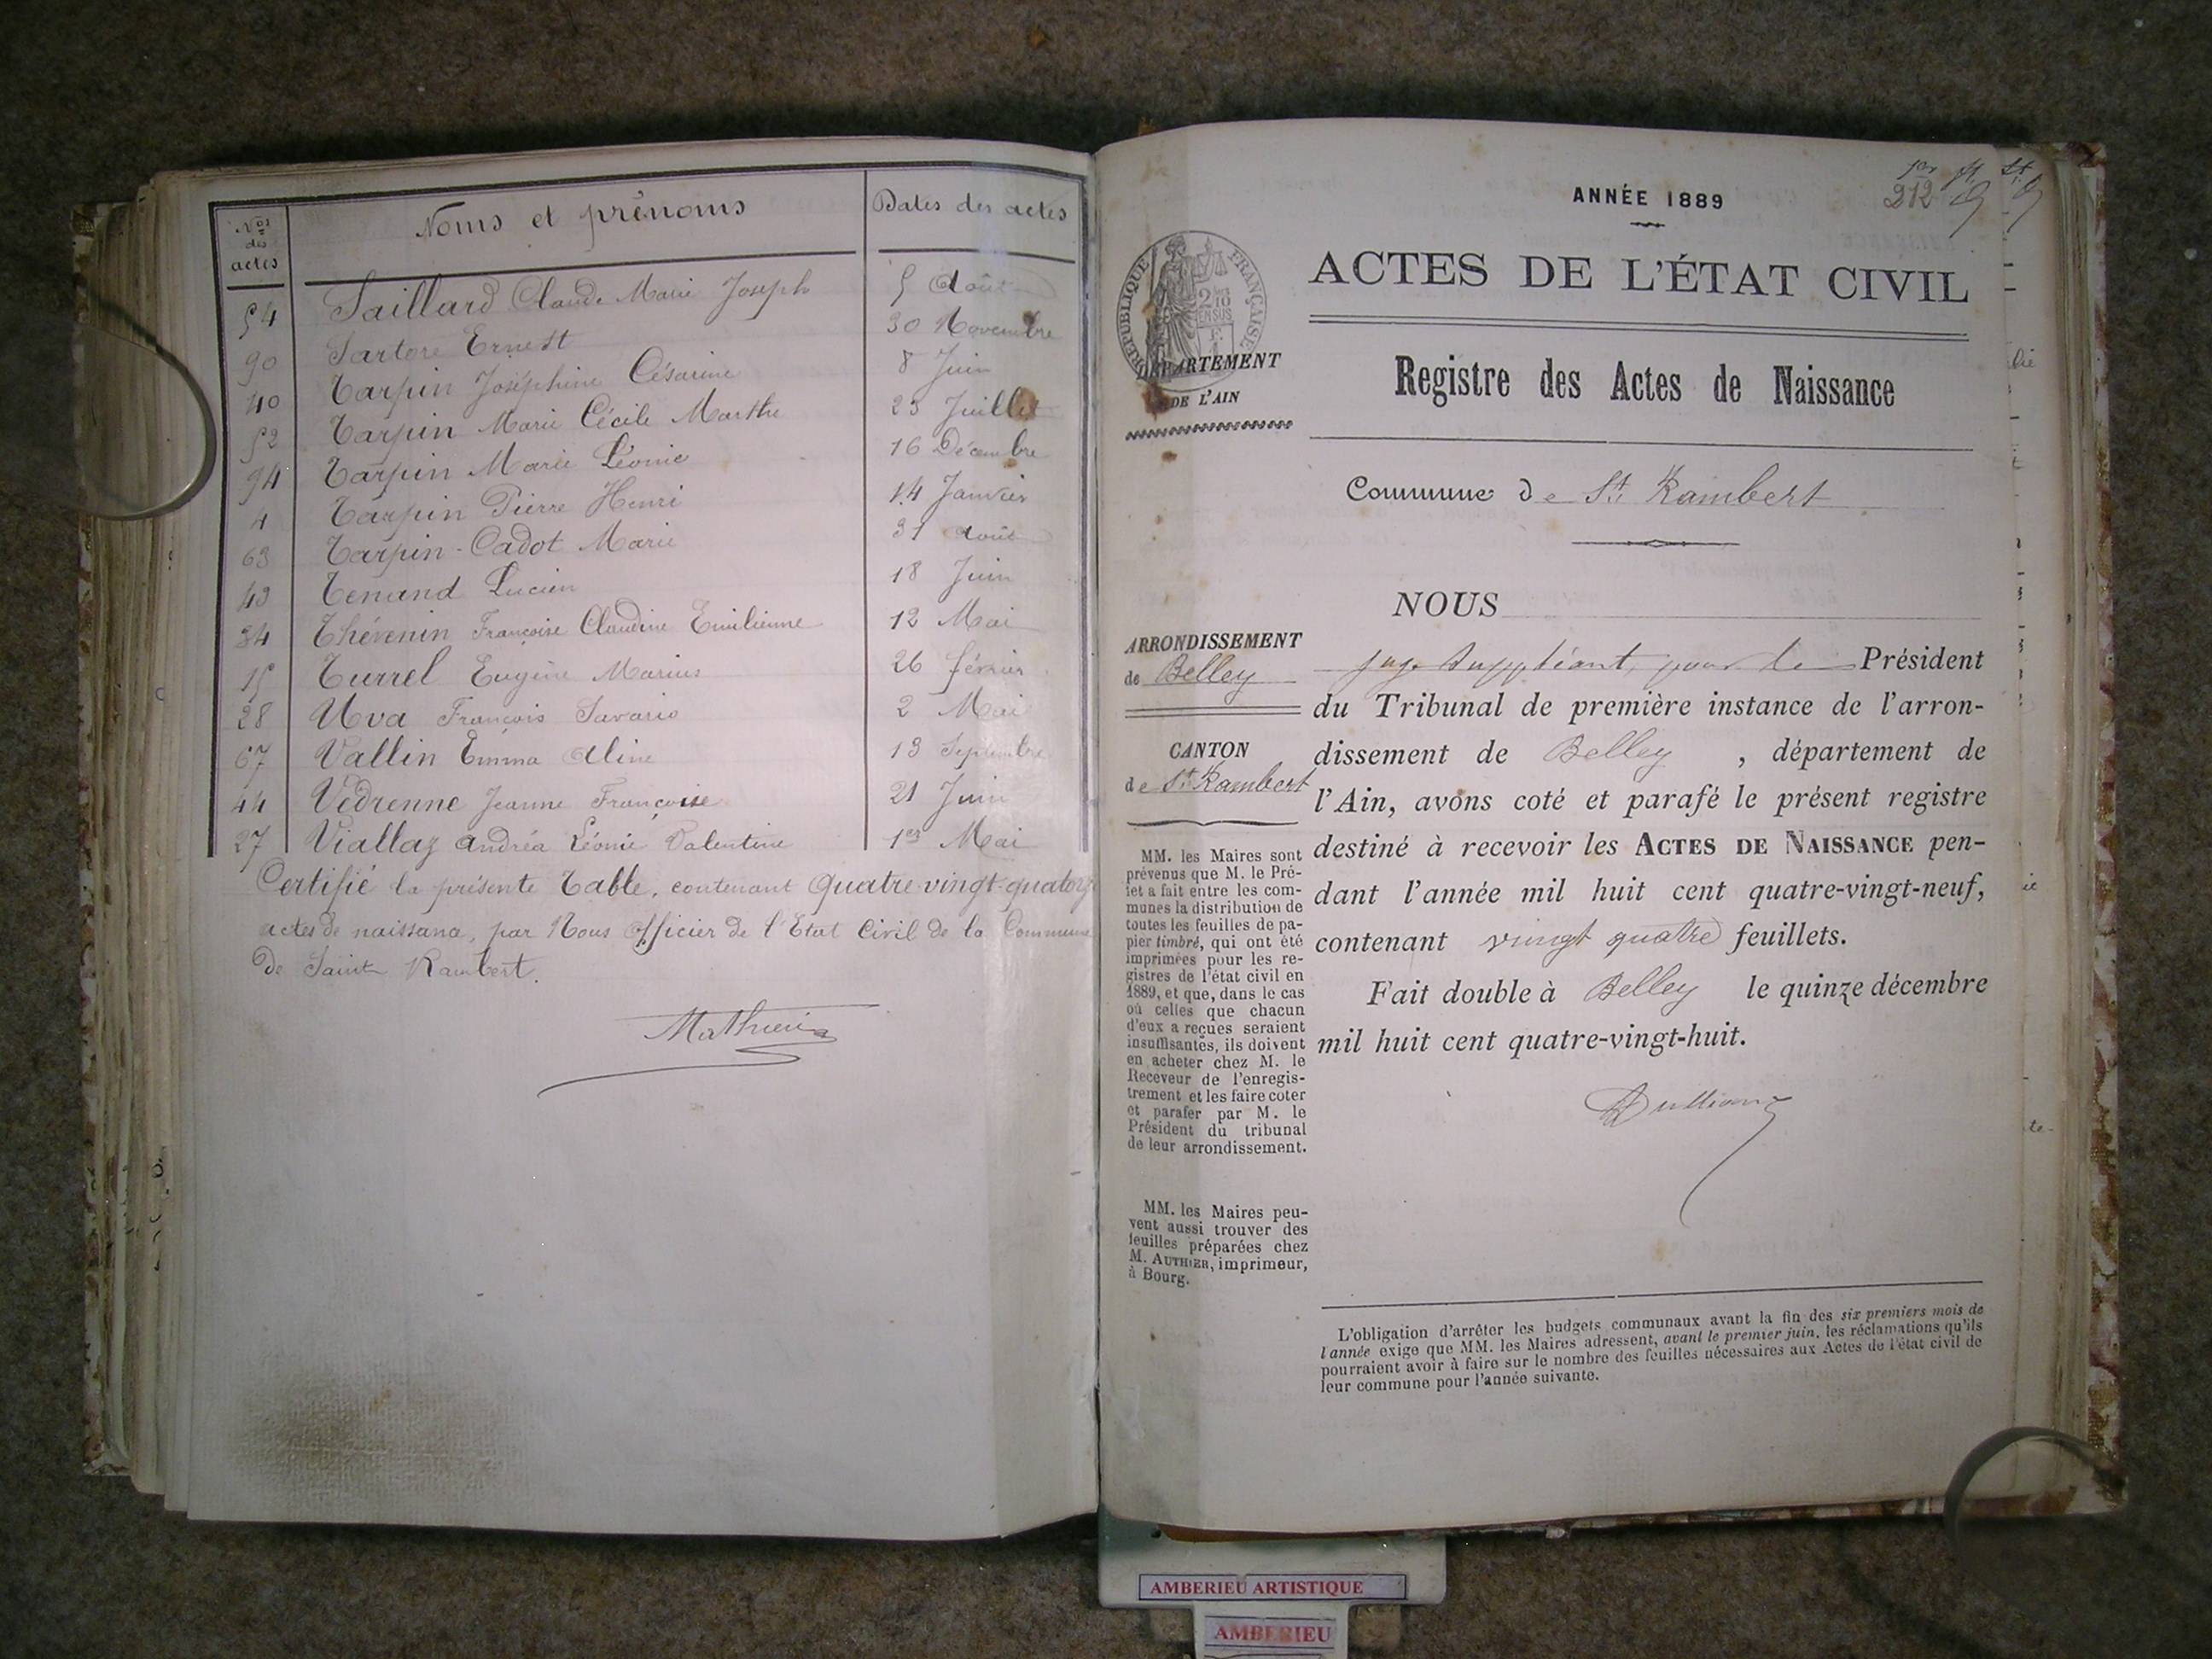 Nos des actes
Noms et prénoms
Dates des actes
54 Saillard Claude Marie Joseph 5 Août
90 Sartore Ernest 30 Novembre
40 Tarpin Joséphine Césarine 8 Juin
52 Tarpin Marie Cécile Marthe 23 Juillet
94 Tarpin Marie Léonie 16 Décembre
4 Tarpin Pierre Henri 14 Janvier
63 Tarpin-Cadot Marie 31 Août
43 Tenand Lucien 18 Juin
34 Thévenin Françoise Claudine Emilienne 12 Mai
15 Turrel Eugène Marius 26 février
28 Uva François Savario 2 Mai
67 Vallin Emma Aline 13 Septembre
44 Védrenne Jeanne Françoise 21 Juin
27 Viallaz Andréa Léonie Valentine 1er Mai
Certifié la présente Table, contenant Quatre-vingt-quatorze
actes de naissance, par Nous Officier de l'Etat Civil de la Commune
de Saint Rambert.
212
ANNÉE 1889
RÉPUBLIQUE FRANÇAISE
ACTES DE L'ÉTAT CIVIL
DÉPARTEMENT
DE L'AIN
Registre des Actes de Naissance
Commune de St Rambert
NOUS
ARRONDISSEMENT
de Belley
CANTON
de St Rambert
juge suppléant, pour le Président
du Tribunal de première instance de l'arron-
dissement de Belley , département de
l'Ain, avons coté et parafé le présent registre
destiné à recevoir les ACTES DE NAISSANCE pen-
dant l'année mil huit cent quatre-vingt-neuf,
contenant vingt quatre feuillets.
Fait double à Belley le quinze décembre
mil huit cent quatre-vingt-huit.
MM. les Maires sont
prévenus que M. le Pré-
fet a fait entre les com-
munes la distribution de
toutes les feuilles de pa-
pier timbré, qui ont été
imprimées pour les re-
gistres de l'état civil en
1889, et que, dans le cas
où celles que chacun
d'eux a reçues seraient
insuffisantes, ils doivent
en acheter chez M. le
Receveur de l'enregis-
trement et les faire coter
et parafer par M. le
Président du tribunal
de leur arrondissement.
MM. les Maires peu-
vent aussi trouver des
feuilles préparées chez
M. AUTHIER, imprimeur,
à Bourg.
L'obligation d'arrêter les budgets communaux avant la fin des six premiers mois de
l'année exige que MM. les Maires adressent, avant le premier juin, les réclamations qu'ils
pourraient avoir à faire sur le nombre des feuilles nécessaires aux Actes de l'état civil de
leur commune pour l'année suivante.
AMBERIEU ARTISTIQUE
AMBERIEU